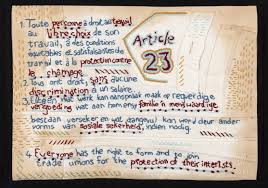 1. Toute personne a droit au travail
au libre choix de son
travail, à des conditions
équitables et satisfaisantes de
travail et à la protection contre
le chômage.
Article
23
2. Tous ont droit, sans aucune
discrimination à un salaire
3. Elkeen wat werk kan aanspraak maak op regverdige
vergoeding wat aan hom en sy familie 'n menswaardige
bestaan verseker en wat dan kan word deur ander
vorms van sosiale sekerheid, indien nodig.
4. Everyone has the right to form and to join
trade unions for the protection of their interests.